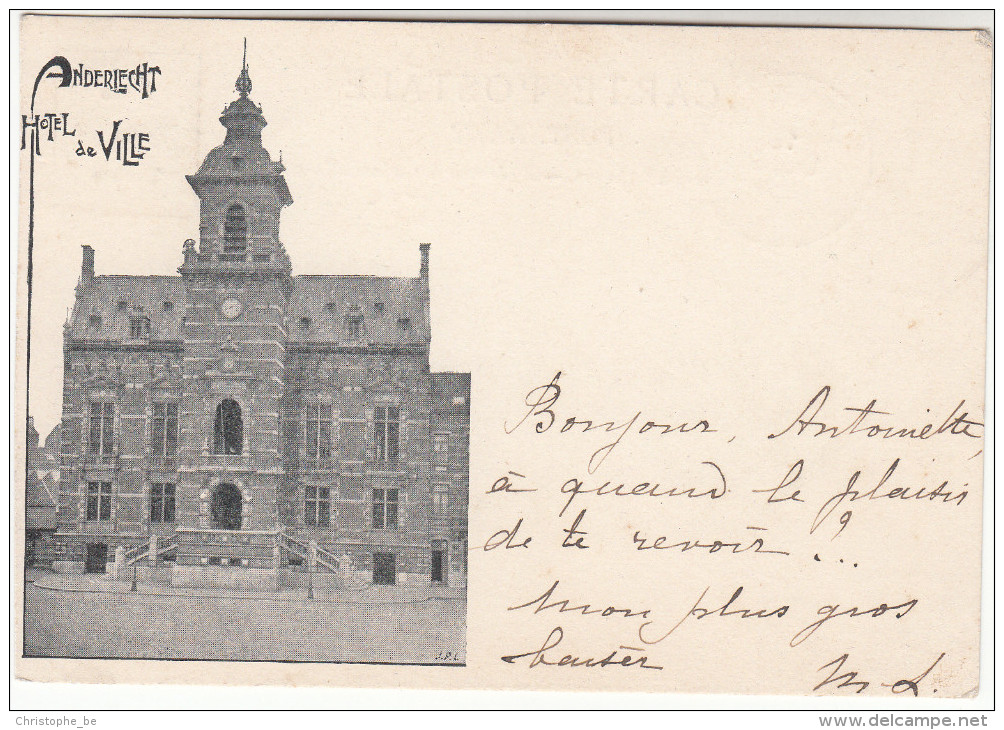 ANDERLECHT
HOTEL
de VILLE
Bonjour, Antoinette,
à quand le plaisir
de te revoir ?..
Mon plus gros
baiser
M-L.
J.P.L
Christophe_be
www.delcampe.net